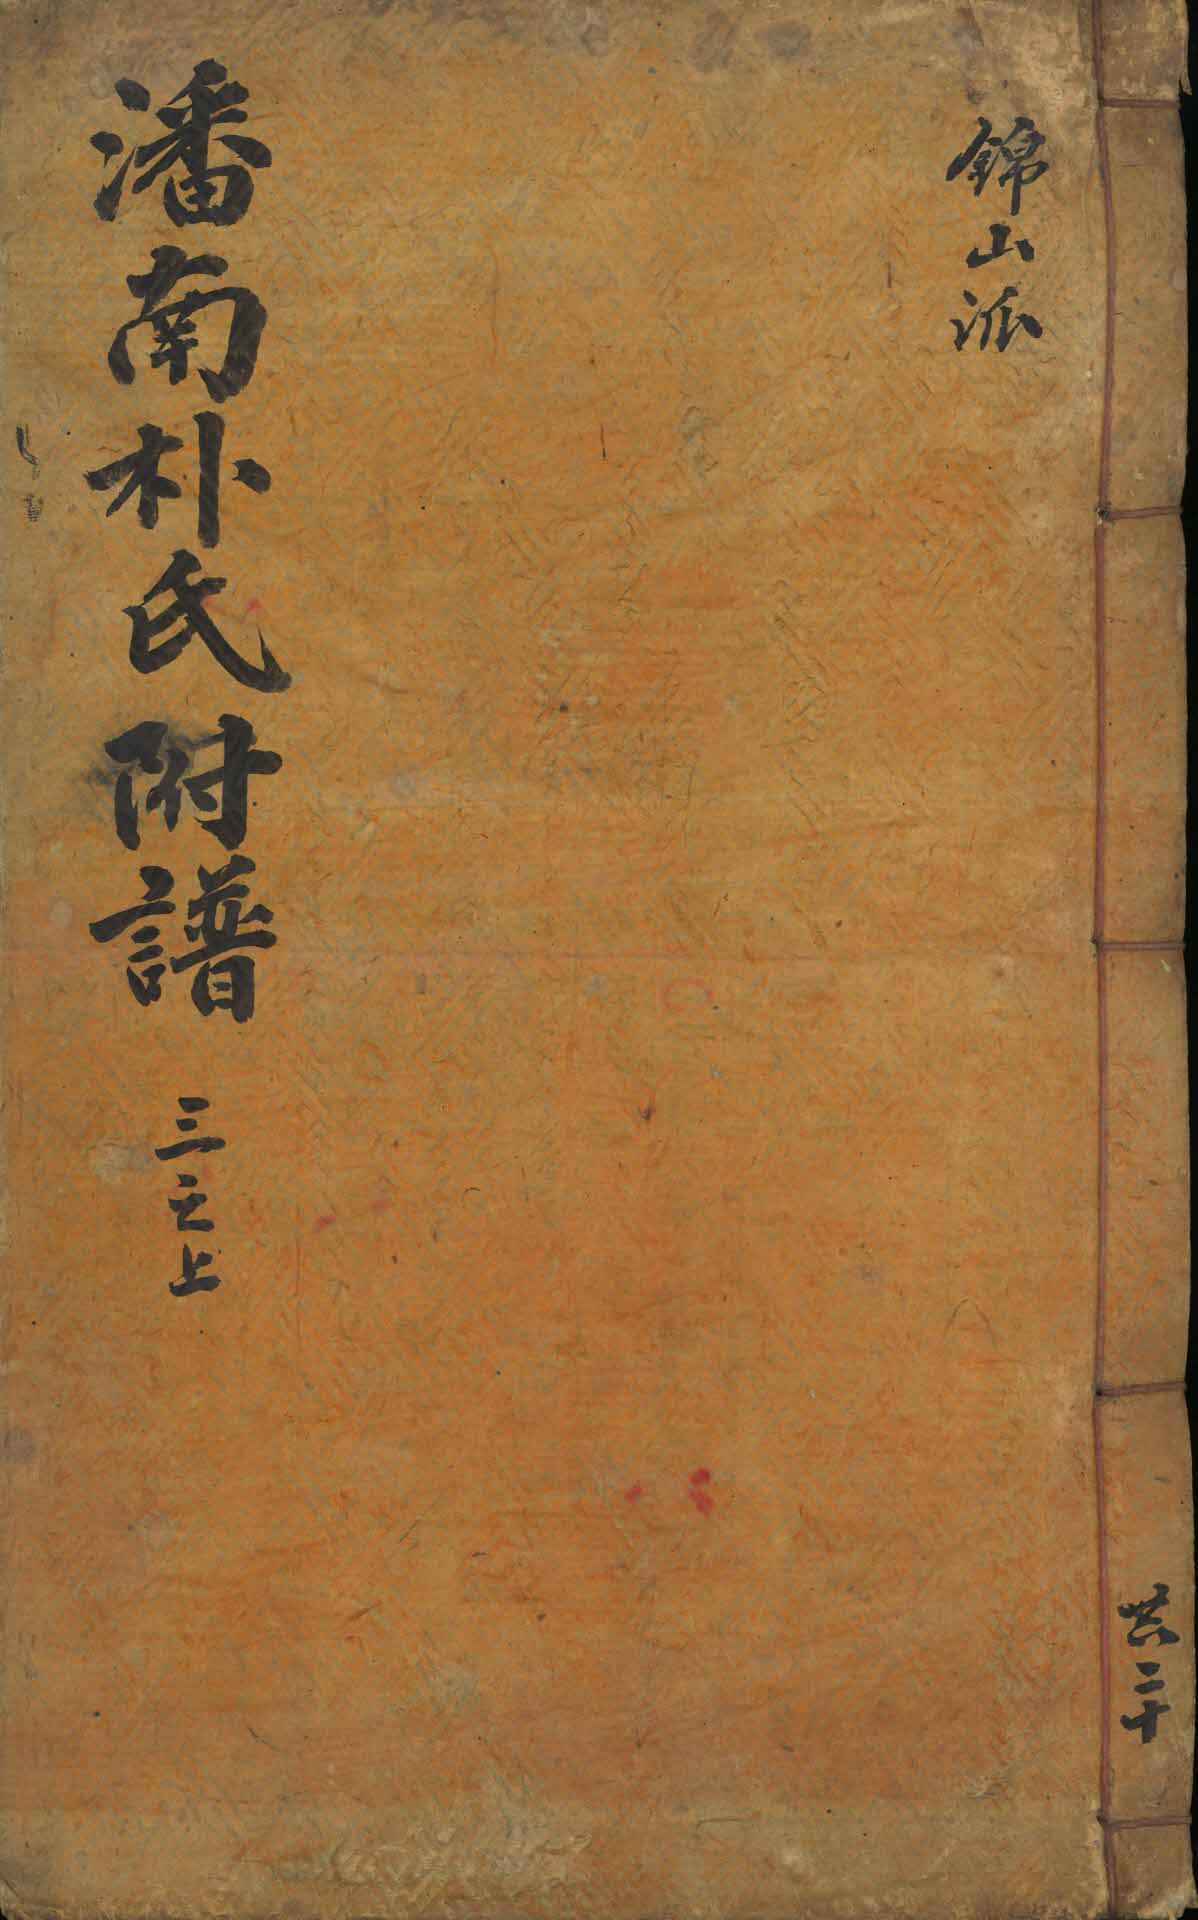 錦山派
潘南朴氏附譜 三之上
共二十